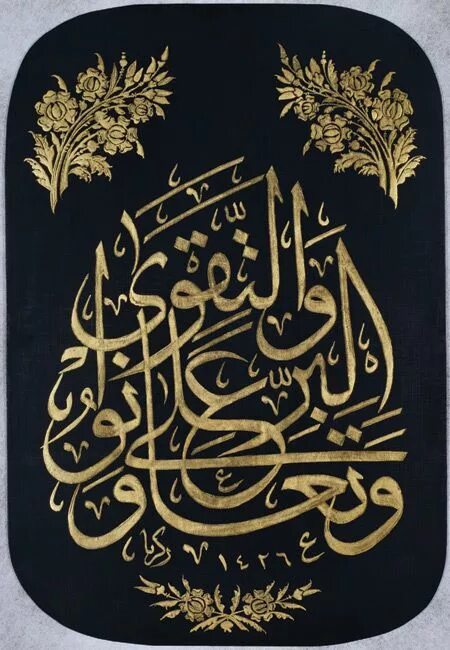 وتعاونوا على البر والتقوى
زكريا ١٤٢٦ ع